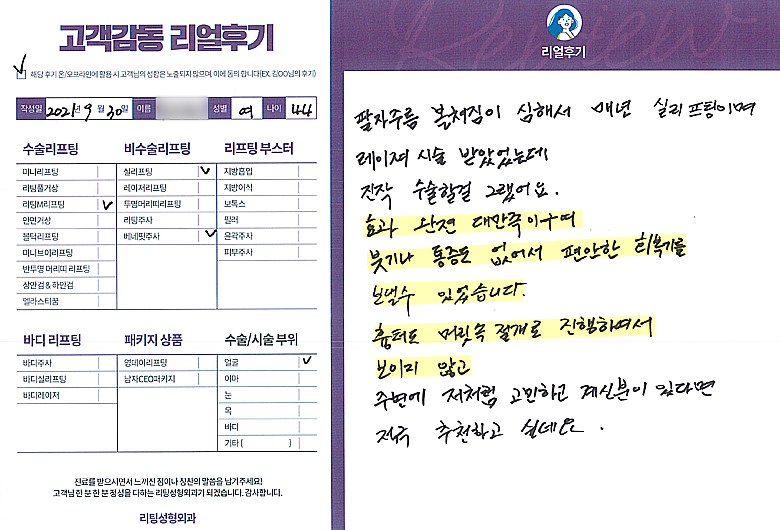 고객감동 리얼후기
해당 후기 온/오프라인에 활용 시 고객님의 성함은 노출되지 않으며, 이에 동의 합니다(EX. 김OO님의 후기)
작성일 2021년 9월 30일 이름 성별 여 나이 44
수술리프팅
미니리프팅
리팅풀거상
리팅M리프팅
안면거상
볼턱리프팅
미니브이리프팅
반투명 머리띠 리프팅
상안검 & 하안검
엘라스티꿈
비수술리프팅
실리프팅
레이저리프팅
투명머리띠리프팅
리팅주사
베네핏주사
리프팅 부스터
지방흡입
지방이식
보톡스
필러
윤곽주사
피부주사
바디 리프팅
바디주사
바디실리프팅
바디레이저
패키지 상품
영데이리프팅
남자CEO패키지
수술/시술 부위
얼굴
이마
눈
목
바디
기타 ( )
진료를 받으시면서 느끼신 점이나 칭찬의 말씀을 남겨주세요!
고객님 한 분 한 분 정성을 다하는 리팅성형외과가 되겠습니다. 감사합니다.
리팅성형외과
Review
리얼후기
팔자주름 볼처짐이 심해서 매년 실리프팅이며
레이저 시술 받았었는데
진작 수술할걸 그랬어요.
효과 완젼 대만족이구여
붓기나 통증도 없어서 편안한 회복기를
보낼수 있었습니다.
흉터도 머릿속 절개로 진행하여서
보이지 않고
주변에 저처럼 고민하고 계신분이 있다면
적극 추천하고 싶네요.